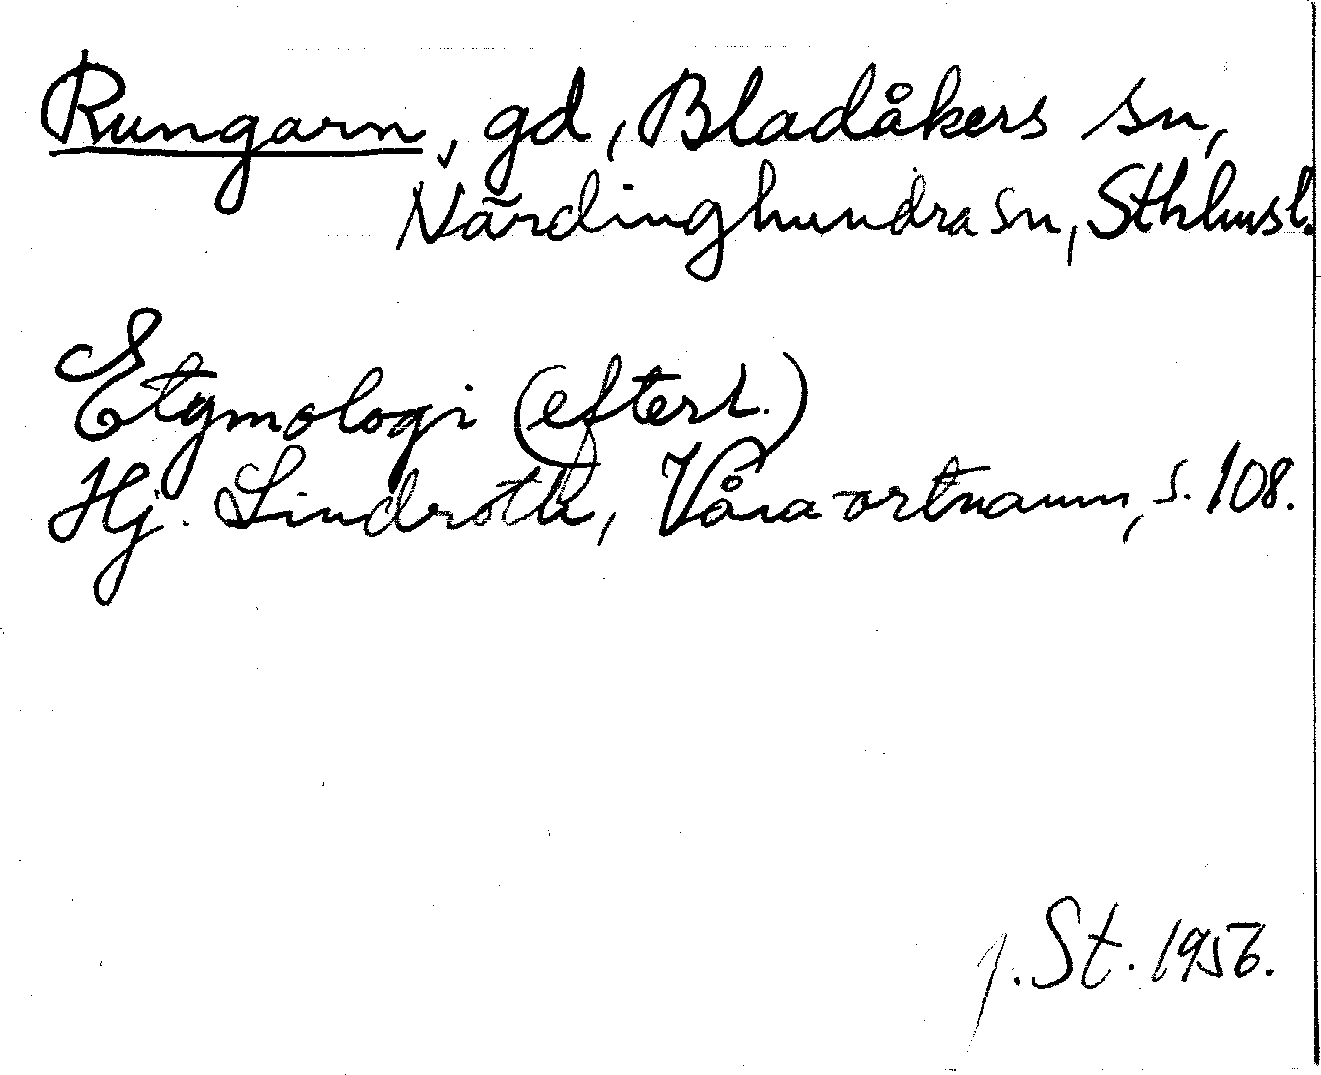 Rungarn, gd, Bladåkers sn,
Närdinghundra sn, Sthlmsl.
Etymologi (efterl.)
Hj. Lindroth, Våra ortnamn, s. 108.
St. 1956.